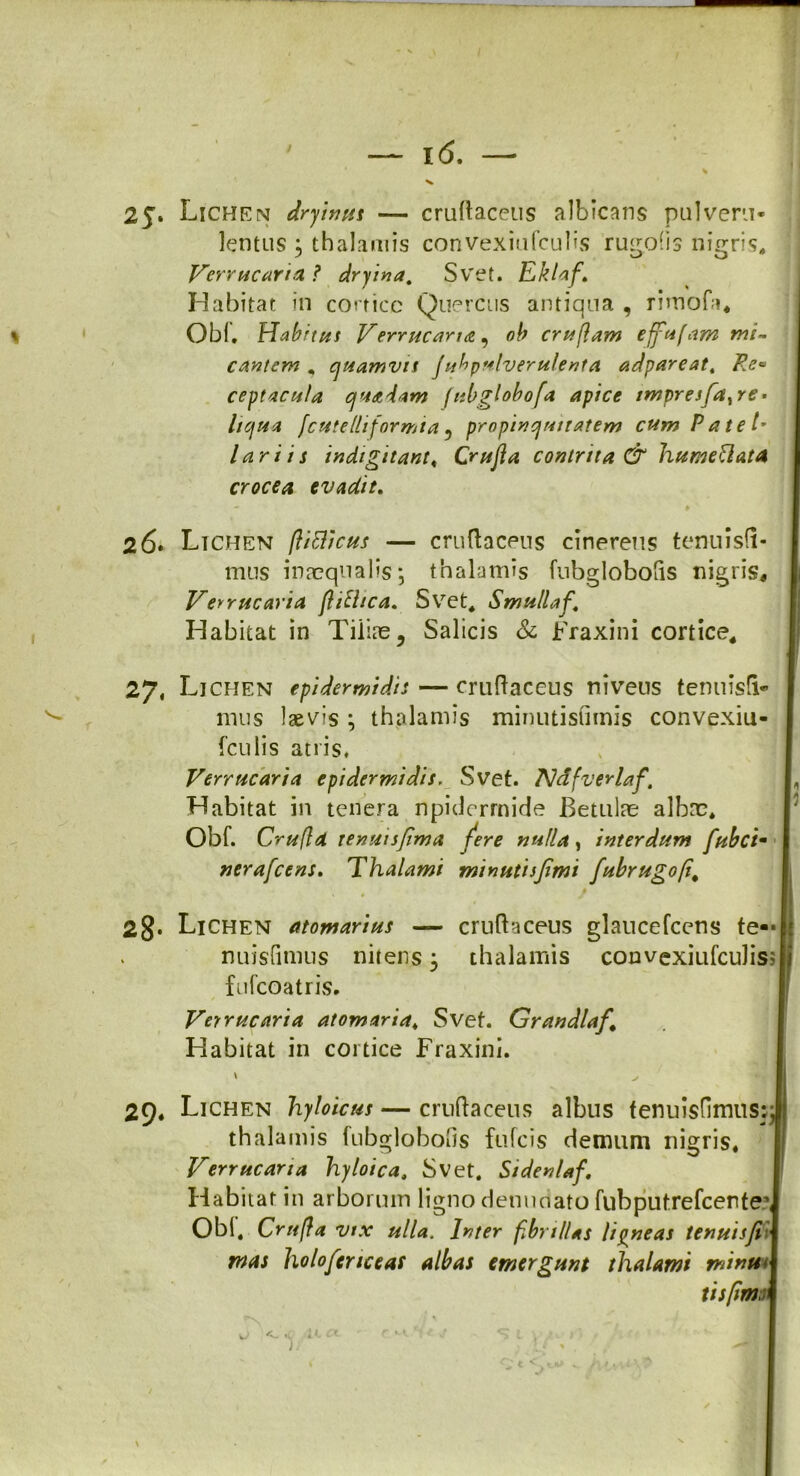 — 16. —
25. LICHEN dryinus — cruſtaceus albicans pulveru-
lentus; thalamis convexiuſculis rugoſis nigris.
Verrucaria? dryina. Svet. Eklaf.
Habitat in cortice Quercus antiqua, rimoſa.
Obſ. Habitus Verrucariæ, ob cruſtam effuſam mi-
cantem, quamvis ſubpulverulenta adpareat. Re-
ceptacula quædam ſubgloboſa apice impresſa, re-
liqua ſcutelliformia, propinquitatem cum Patel-
lariis indigitant. Cruſta contrita & humectata
crocea evadit.
26. LICHEN ſticticus — cruſtaceus cinereus tenuisſi-
mus inæqualis; thalamis ſubgloboſis nigris.
Verrucaria ſtictica. Svet. Smullaf.
Habitat in Tiliæ, Salicis & Fraxini cortice.
27. LICHEN epidermidis — cruſtaceus niveus tenuisſi-
mus lævis; thalamis minutisſimis convexiu-
ſculis atris.
Verrucaria epidermidis. Svet. Näfverlaf.
Habitat in tenera npidermide Betulæ albæ.
Obſ. Cruſta tenuisſima fere nulla, interdum ſubci-
neraſcens. Thalami minutisſimi ſubrugoſi.
28. LICHEN atomarius — cruſtaceus glauceſcens te-
nuisſimus nitens; thalamis convexiuſculis
fuſcoatris.
Verrucaria atomaria. Svet. Grandlaf.
Habitat in cortice Fraxini.
29. LICHEN hyloicus — cruſtaceus albus tenuisſimus;
thalamis ſubgloboſis fuſcis demum nigris.
Verrucaria hyloica. Svet. Sidenlaf.
Habitat in arborum ligno denudato ſubputreſcente.
Obſ. Cruſta vix ulla. Inter fibrillas ligneas tenuisſi-
mas holoſericeas albas emergunt thalami minu-
tisſimi